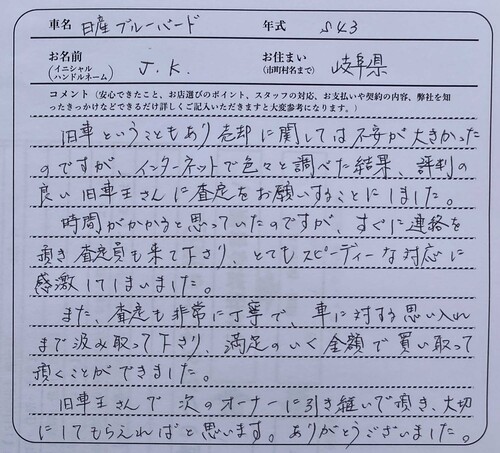 車名 日産ブルーバード 年式 S43
お名前 (イニシャル ハンドルネーム) J.K. お住まい (市町村名まで) 岐阜県
コメント（安心できたこと、お店選びのポイント、スタッフの対応、お支払いや契約の内容、弊社を知
ったきっかけなどできるだけ詳しくご記入いただきますと大変参考になります。）
旧車ということもあり売却に関しては不安が大きかった
のですが、インターネットで色々と調べた結果、評判の
良い旧車王さんに査定をお願いすることにしました。
時間がかかると思っていたのですが、すぐに連絡を
頂き査定員も来て下さり、とてもスピーディーな対応に
感激してしまいました。
また、査定も非常に丁寧で、車に対する思い入れ
まで汲み取って下さり、満足のいく金額で買い取って
頂くことができました。
旧車王さんで次のオーナーに引き継いで頂き、大切
にしてもらえればと思います。ありがとうございました。